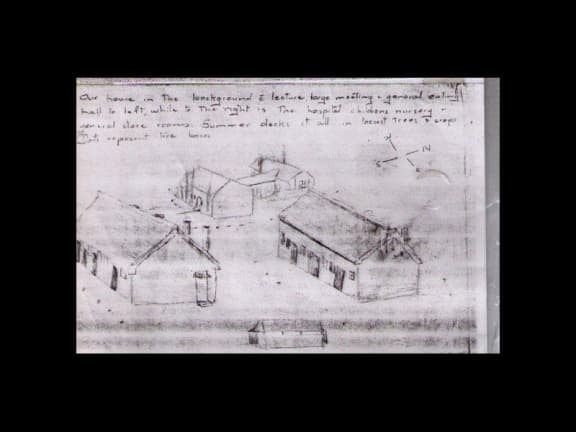 Our house in the background & lecture large meeting & general eating
hall to left, while to the right is the hospital childrens nursery &
general store rooms. Summer decks it all in locust trees & crops
Dots represent tree bases
N
S